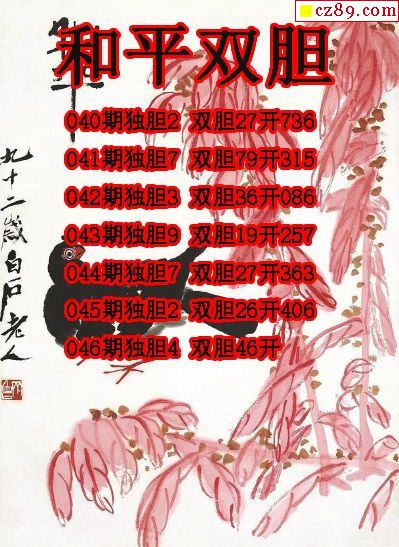 cz89.com
和平
和平双胆
040期独胆2 双胆27开736
041期独胆7 双胆79开315
042期独胆3 双胆36开086
043期独胆9 双胆19开257
044期独胆7 双胆27开363
045期独胆2 双胆26开406
046期独胆4 双胆46开
九十二岁白石老人